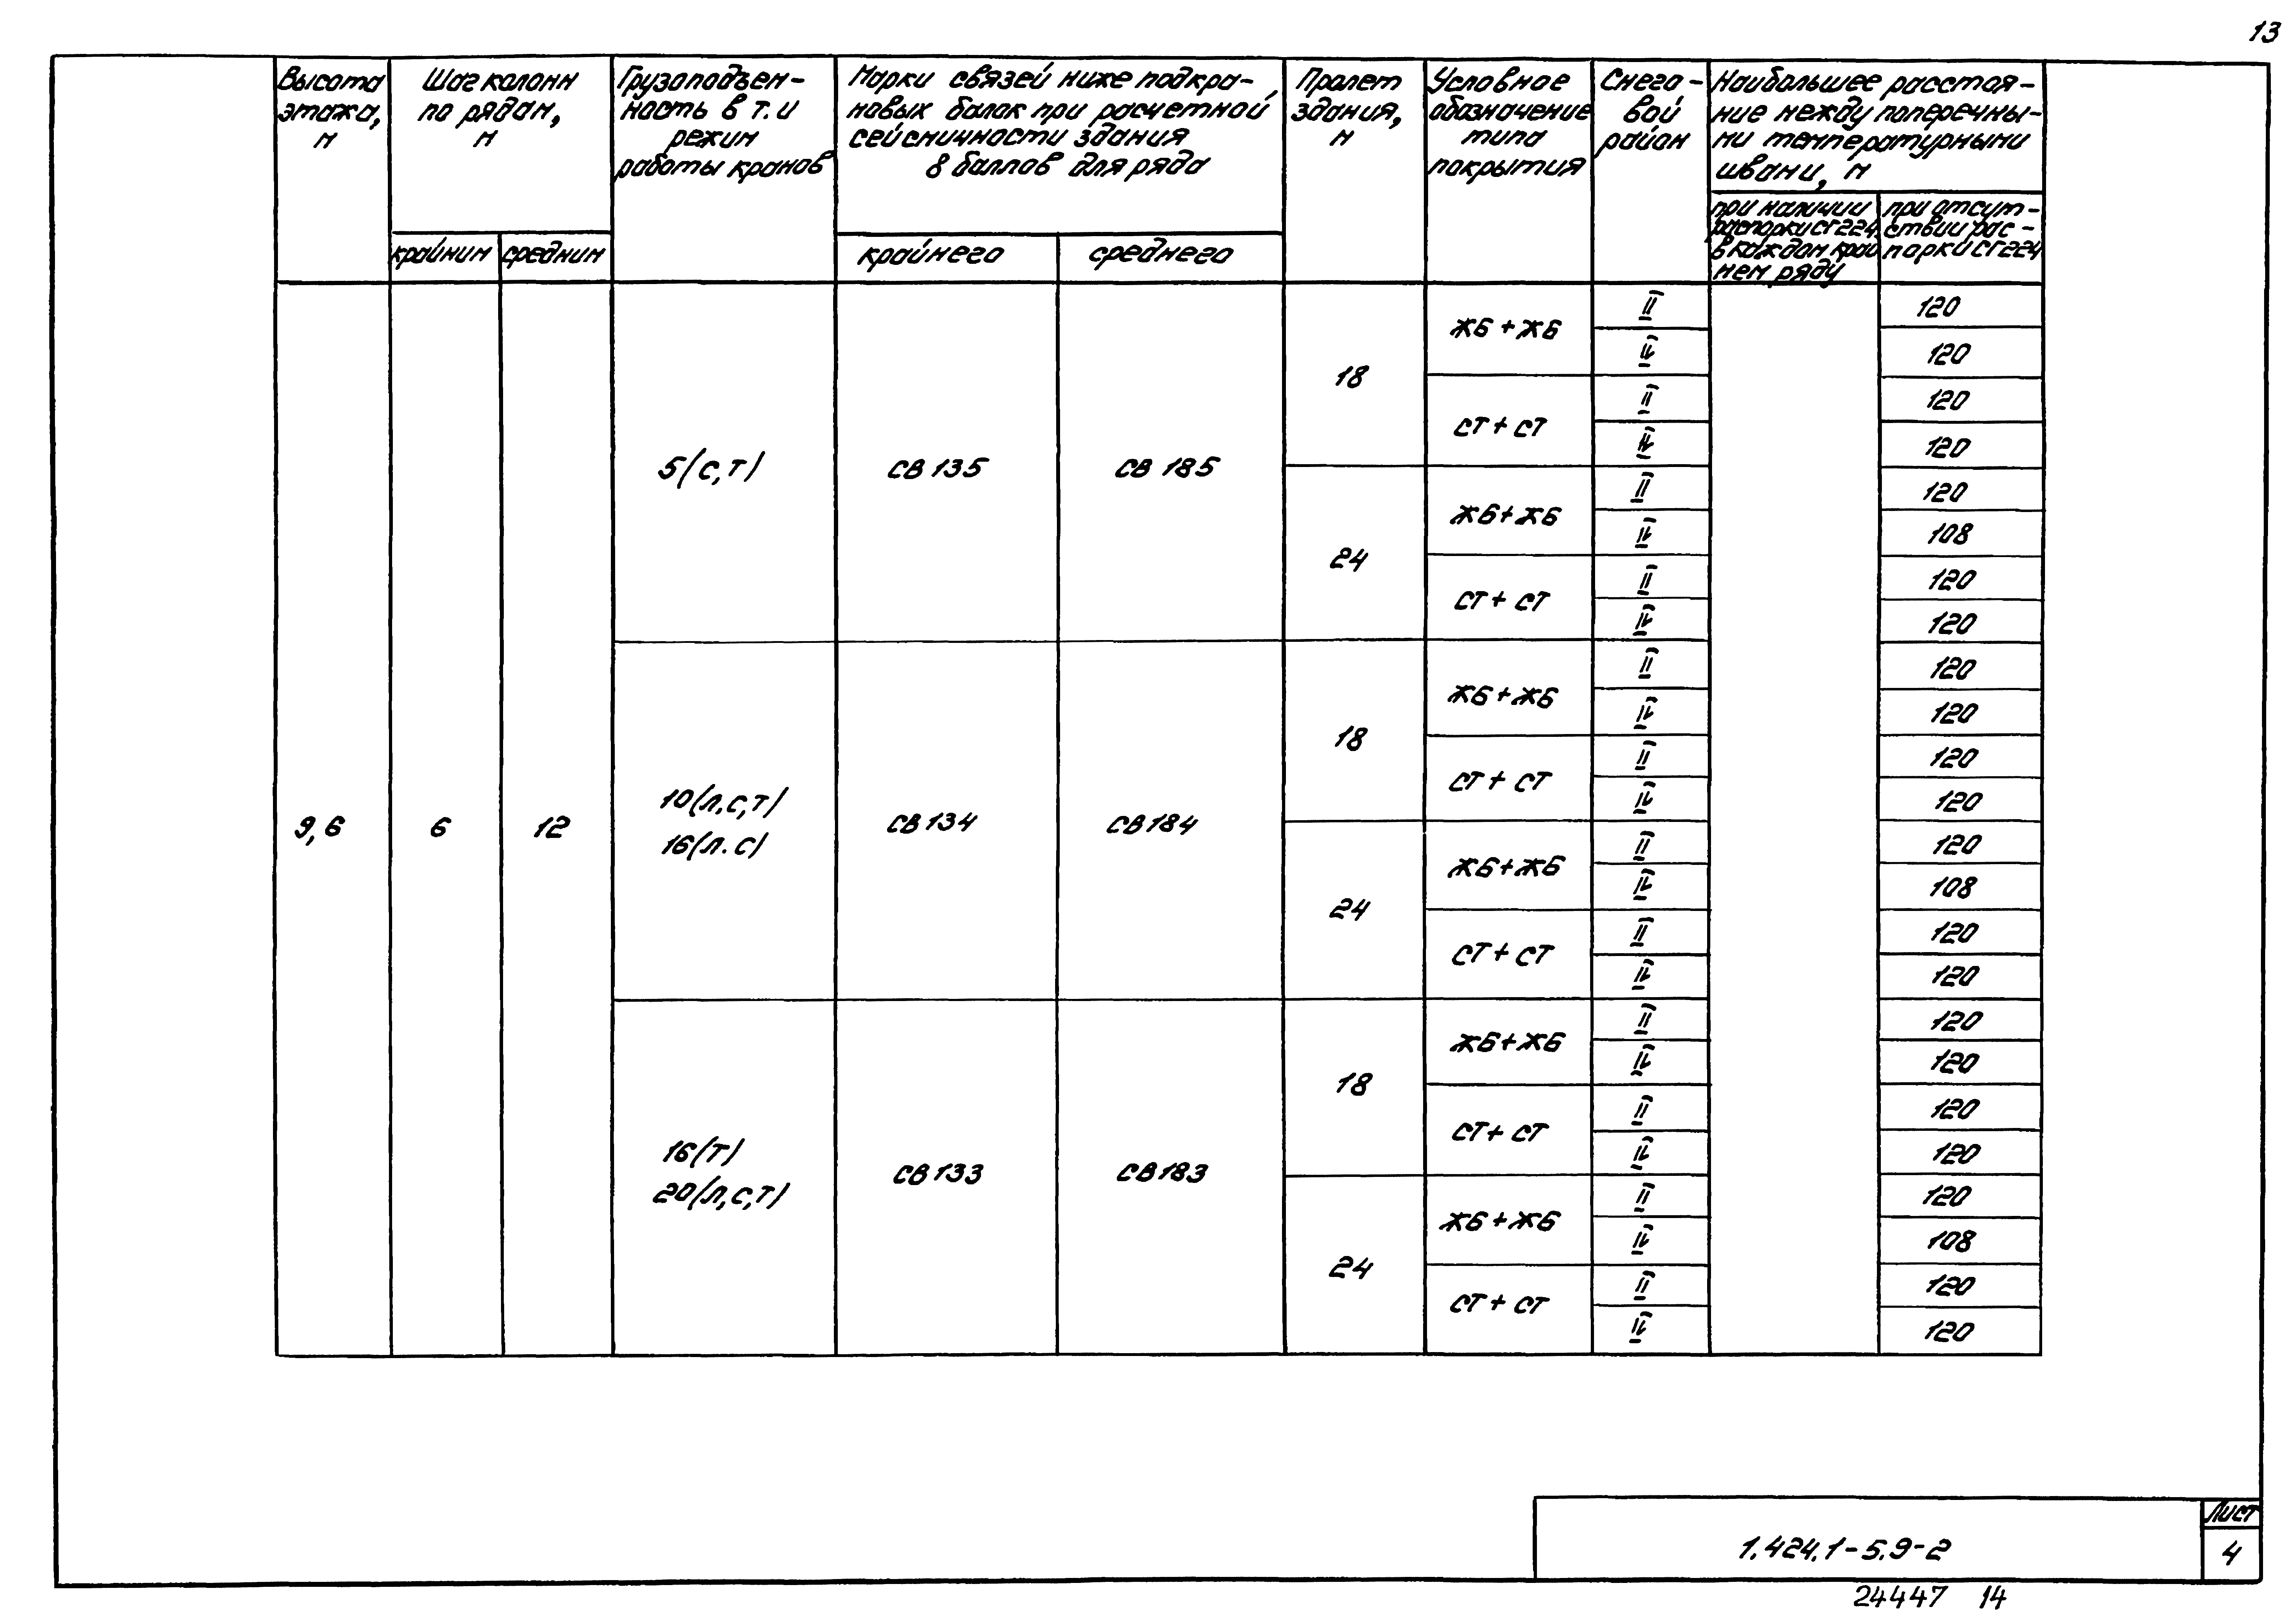 13
Высота этажа, м
Шаг колонн по рядам, м
Грузоподъем-
ность в т. и
режим
работы кранов
Марки связей ниже подкра-
новых балок при расчетной
сейсмичности здания
8 баллов для ряда
Пролет здания, м
Условное
обозначение
типа
покрытия
Снего-
вой
район
Наибольшее расстоя-
ние между поперечны-
ми температурными
швами, м
крайним
средним
крайнего
среднего
при наличии
распорки СГ224
в каждом край
нем ряду
при отсут-
ствии рас-
порки СГ224
9,6
6
12
5(с,т)
СВ 135
СВ 185
18
ЖБ + ЖБ
II 120
IV 120
СТ + СТ
II 120
IV 120
24
ЖБ + ЖБ
II 120
IV 108
СТ + СТ
II 120
IV 120
10(л,с,т)
16(л.с)
СВ 134
СВ 184
18
ЖБ + ЖБ
II 120
IV 120
СТ + СТ
II 120
IV 120
24
ЖБ + ЖБ
II 120
IV 108
СТ + СТ
II 120
IV 120
16(т)
20(л,с,т)
СВ 133
СВ 183
18
ЖБ + ЖБ
II 120
IV 120
СТ + СТ
II 120
IV 120
24
ЖБ + ЖБ
II 120
IV 108
СТ + СТ
II 120
IV 120
1.424.1-5.9-2
Лист
4
24447 14